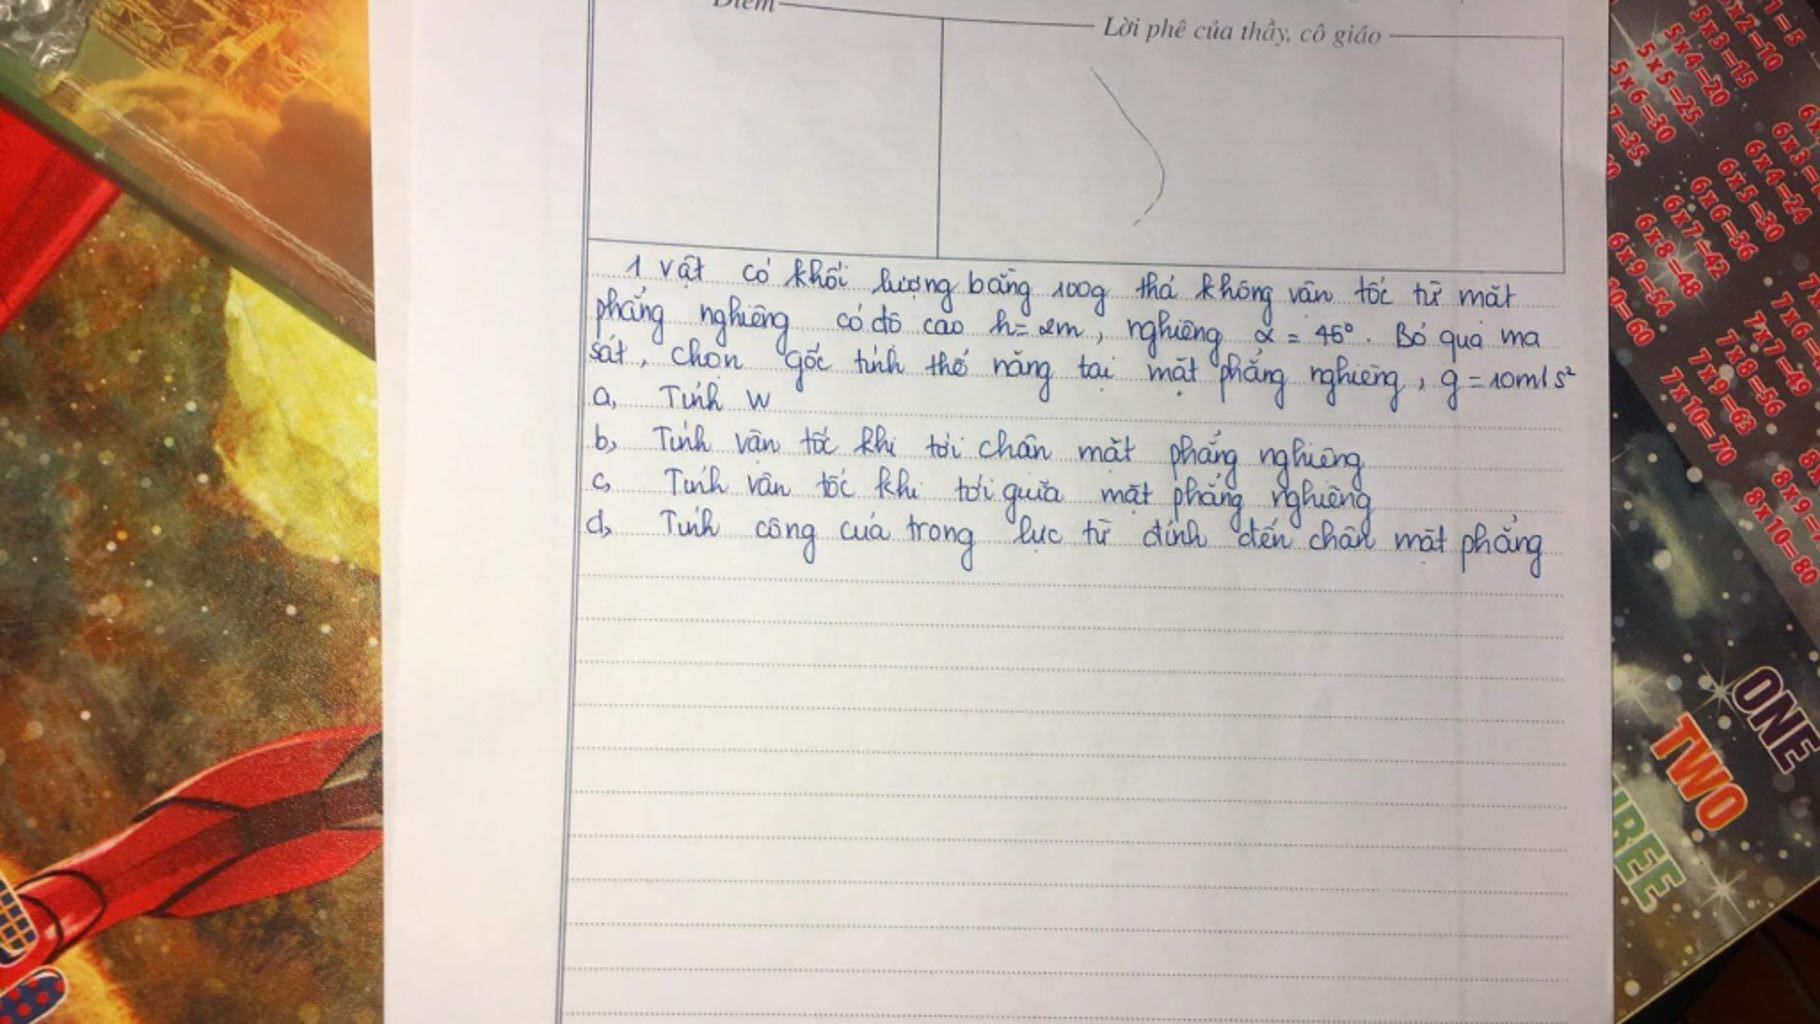 Điểm
Lời phê của thầy, cô giáo
1 vật có khối lượng bằng 100g thả không vận tốc từ mặt
phẳng nghiêng có độ cao h= 2m, nghiêng α = 45°. Bỏ qua ma
sát, chọn gốc tính thế năng tại mặt phẳng nghiêng, g = 10m/s²
a, Tính W
b, Tính vận tốc khi tới chân mặt phẳng nghiêng
c, Tính vận tốc khi tới giữa mặt phẳng nghiêng
d, Tính công của trọng lực từ đỉnh đến chân mặt phẳng
5x2=10
5x3=15
5x4=20
5x5=25
5x6=30
6x4=24
6x5=30
6x6=36
6x7=42
6x8=48
6x9=54
7x7=49
7x8=56
7x9=63
7x10=70
8x10=80
ONE
TWO